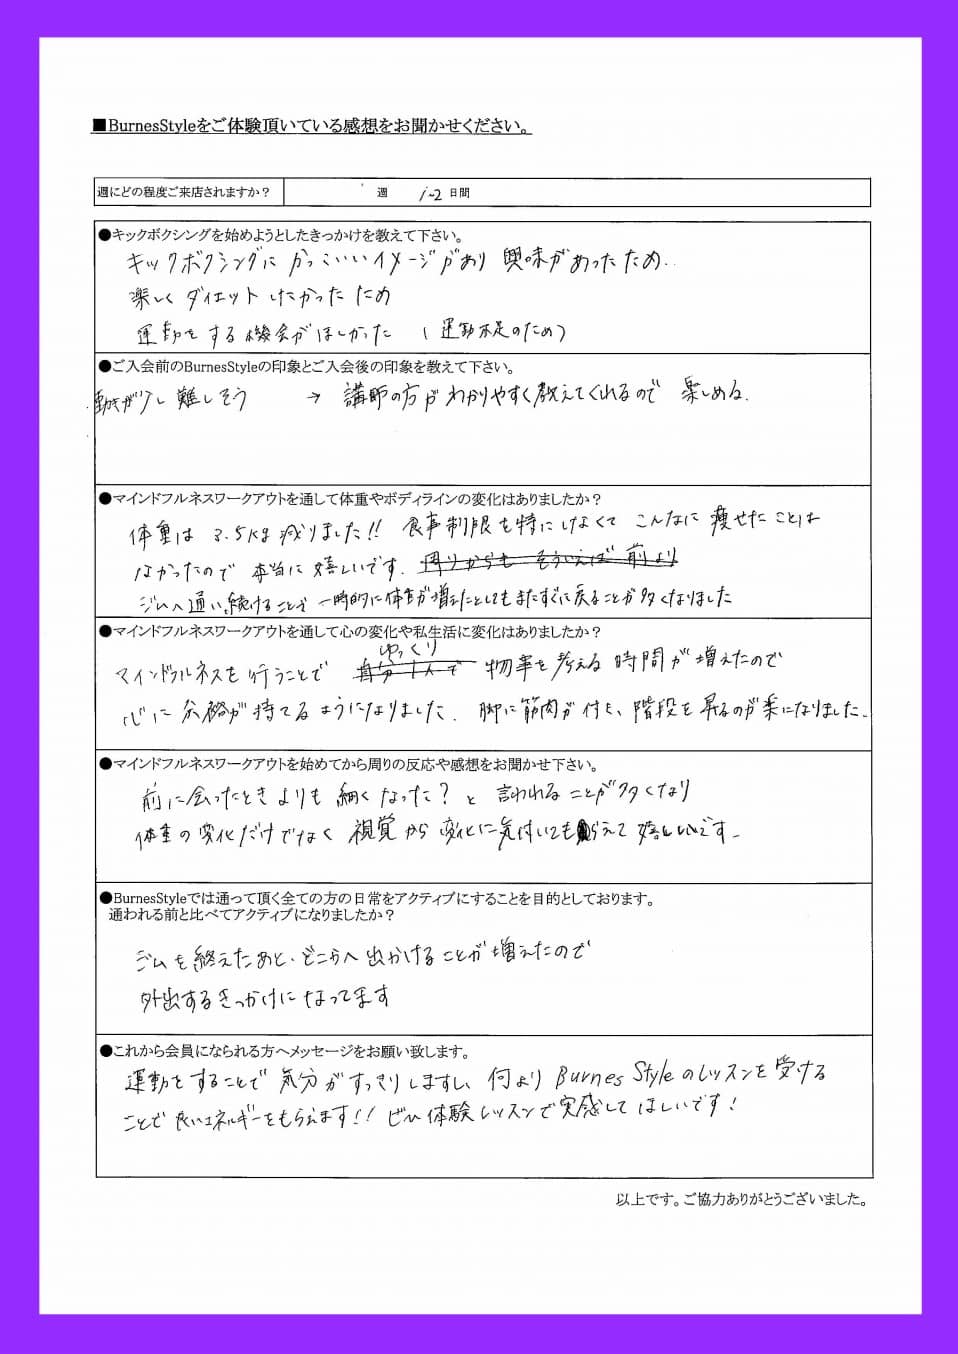 ■BurnesStyleをご体験頂いている感想をお聞かせください。
週にどの程度ご来店されますか? 週 1~2 日間
●キックボクシングを始めようとしたきっかけを教えて下さい。
キックボクシングにかっこいいイメージがあり 興味があったため..
楽しく ダイエットしたかったため
運動をする機会がほしかった (運動不足のため)
●ご入会前のBurnesStyleの印象とご入会後の印象を教えて下さい。
動きが少し難しそう → 講師の方がわかりやすく教えてくれるので 楽しめる.
●マインドフルネスワークアウトを通して体重やボディラインの変化はありましたか?
体重は 3.5kg 減りました!! 食事制限も特にしなくて こんなに痩せたことは
なかったので 本当に嬉しいです. 周りからも そういえば 前より
ジムへ通い続けることで 一時的に体重が増えたとしてもまたすぐに戻ることが多くなりました
●マインドフルネスワークアウトを通して心の変化や私生活に変化はありましたか?
ゆっくり
マインドフルネスを行うことで 自分1人で 物事を考える時間が増えたので
心に余裕が持てるようになりました. 脚に筋肉が付き、階段を昇るのが楽になりました.
●マインドフルネスワークアウトを始めてから周りの反応や感想をお聞かせ下さい。
前に会ったときよりも細くなった? と 言われることが多くなり
体重の変化だけでなく 視覚から変化に気付いてもらえて 嬉しいです.
●BurnesStyleでは通って頂く全ての方の日常をアクティブにすることを目的としております。
通われる前と比べてアクティブになりましたか?
ジムを終えたあと、どこかへ出かけることが増えたので
外出するきっかけになってます
●これから会員になられる方へメッセージをお願い致します。
運動をすることで 気分がすっきりしますし、何より Burnes Style のレッスンを受ける
ことで良いエネルギーをもらえます!! ぜひ体験レッスンで実感してほしいです!
以上です。ご協力ありがとうございました。